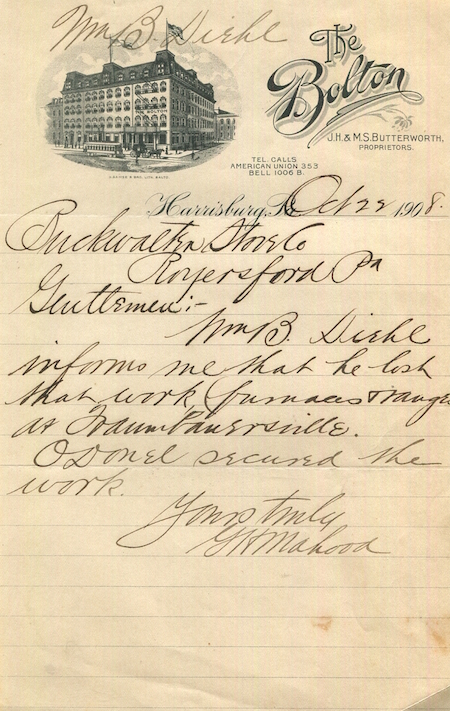 Wm B. Diehl
The
Bolton
J.H. & M.S. BUTTERWORTH,
PROPRIETORS.
TEL. CALLS
AMERICAN UNION 353
BELL 1006 B.
Harrisburg, Pa Oct 22 1908.
Buckwalter Stove Co
Royersford Pa
Gentlemen:-
Wm B. Diehl
informs me that he lost
that work (furnaces & ranges
at Traumbauersville.
O'Donel secured the
work.
Yours truly
G H Mahood